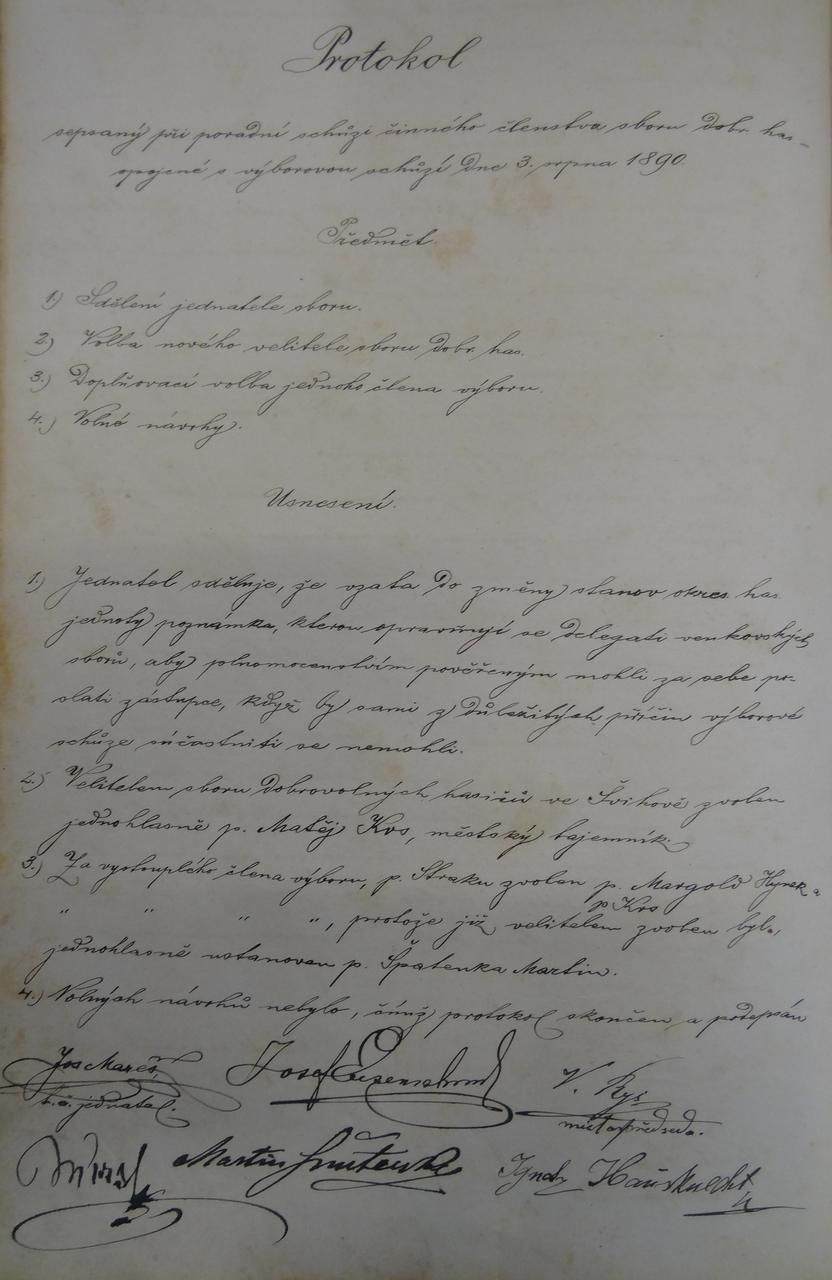 Protokol
sepsaný při poradní schůzi činného členstva sboru dobr. has.
spojené s výborovou schůzí dne 3. srpna 1890.
Předmět.
1.) Sdělení jednatele sboru.
2.) Volba nového velitele sboru dobr. has.
3.) Doplňovací volba jednoho člena výboru.
4.) Volné návrhy.
Usnesení.
1.) Jednatel sděluje, že vzata do změny stanov okres. has.
jednoty poznámka, kterou opravňují se delegati venkovských
sborů, aby plnomocenstvím pověřeným mohli za sebe po-
slati zástupce, když by sami z důležitých příčin výborové
schůze súčastniti se nemohli.
2.) Velitelem sboru dobrovolných hasičů ve Švihově zvolen
jednohlasně p. Matěj Krs, městský tajemník.
3.) Za vystouplého člena výboru, p. Straku zvolen p. Margold Hynek a
" " " ", p Krs protože již velitelem zvolen byl,
jednohlasně ustanoven p. Špatenka Martin.
4.) Volných návrhů nebylo, čímž protokol skončen a podepsán
Jos Mareš, Josef V. Rys
t. č. jednatel. místopředseda.
Martin Ignatz Hausknecht